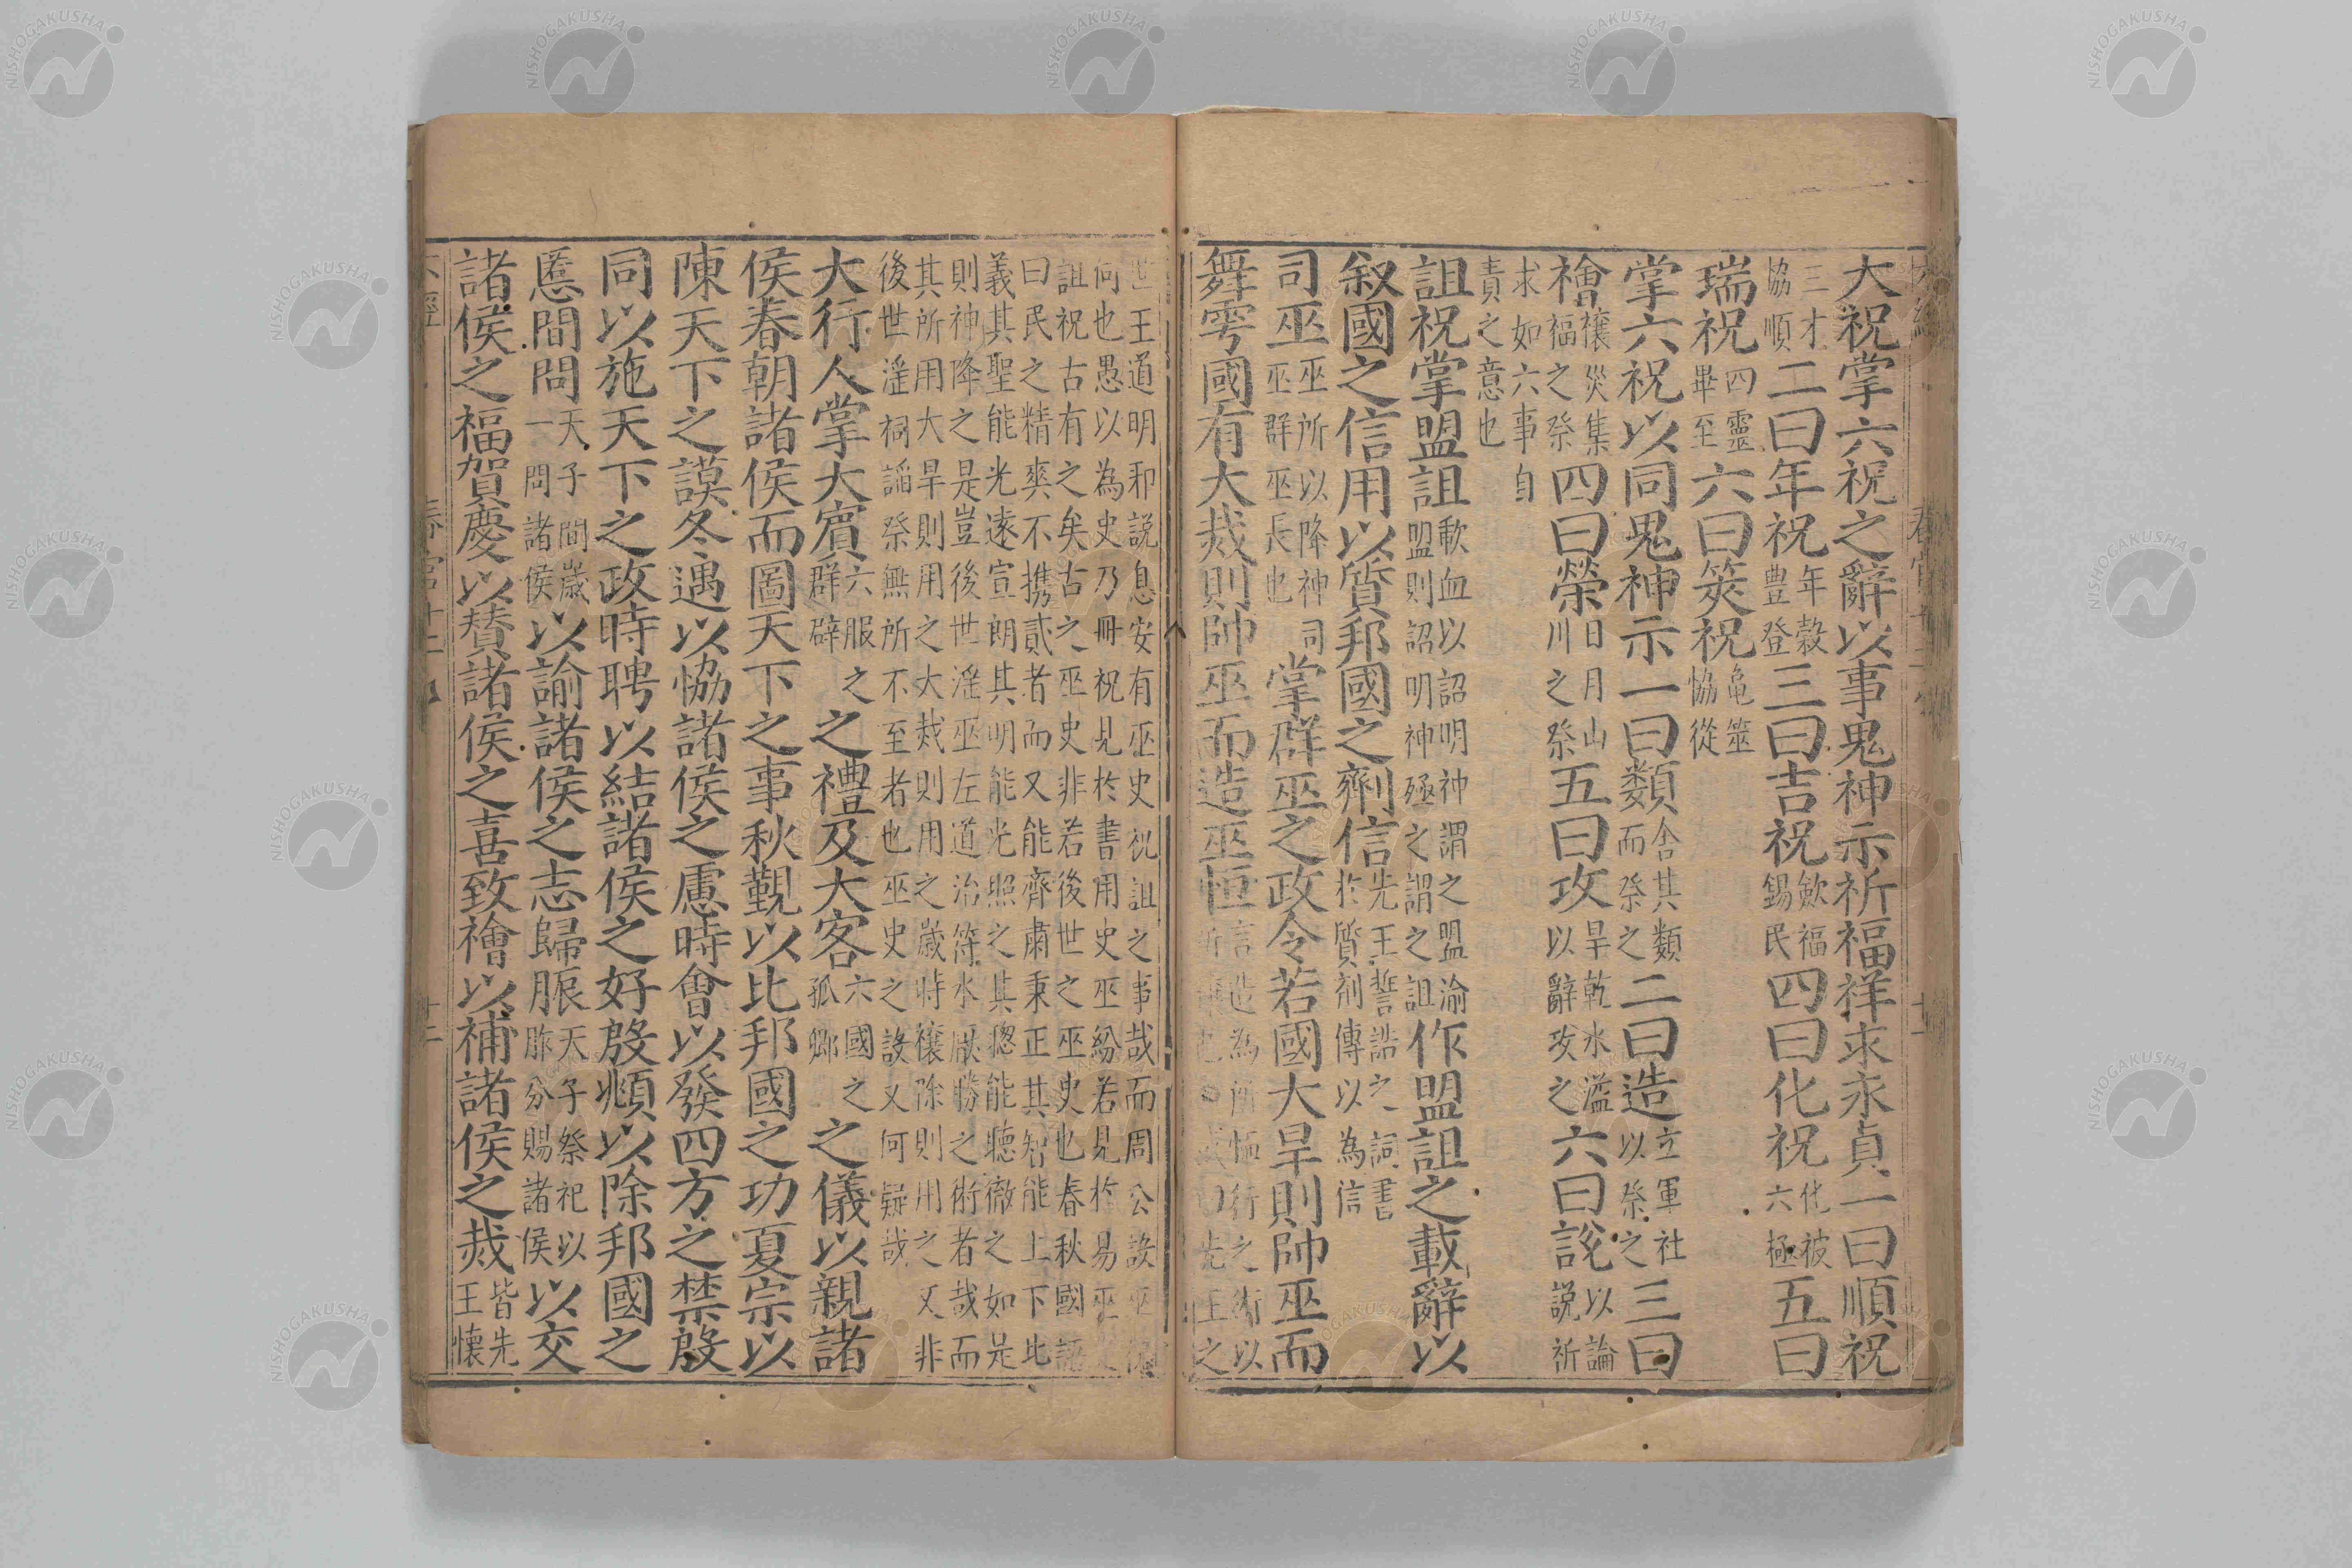 大祝掌六祝之辭以事鬼神示祈福祥求永貞一曰順祝
三才協順二曰年祝年穀豊登三曰吉祝歛福錫民四曰化祝化被六極五曰
瑞祝四靈畢至六曰筴祝亀筮恊從
掌六祝以同鬼神示一曰類含其類而祭之二曰造立軍社以祭之三曰
禬禳災集福之祭四曰禜日月山川之祭五曰攻旱乾水溢以辭攻之六曰說以論說祈
求如六事自責之意也
詛祝掌盟詛歃血以詔明神謂之盟渝盟則詔明神殛之謂之詛作盟詛之載辭以
叙國之信用以質邦國之劑信先王誓誥之詞書於質剤傳以為信
司巫巫所以降神司巫群巫長也掌群巫之政令若國大旱則帥巫而
舞雩國有大烖則帥巫而造巫恒
王道明和說息安有巫史祝詛之事哉而周公設巫
何也愚以為史乃冊祝見於書用史巫紛若見於易巫
詛祝古有之矣古之巫史非若後世之巫史也春秋國語
曰民之精爽不攜貳者而又能齊肅秉正其智能上下比
義其聖能光遠宣朗其明能光照之其聰能聽徹之如是
則神降之是豈後世淫巫左道治符水厭勝之術者哉而
其所用大旱則用之大烖則用之嵗時禳除則用之又非
後世滛祠謟祭無所不至者也巫史之設又何疑哉
大行人掌大賓六服之群辟之禮及大客六國之孤卿之儀以親諸
侯春朝諸侯而圖天下之事秋覲以比邦國之功夏宗以
陳天下之謨冬遇以恊諸侯之慮時會以發四方之禁殷
同以施天下之政時聘以結諸侯之好殷頫以除邦國之
慝間問天子間嵗一問諸侯以諭諸侯之志歸脤天子祭祀以胙分賜諸侯以交
諸侯之福賀慶以賛諸侯之喜致禬以補諸侯之烖皆先王懷